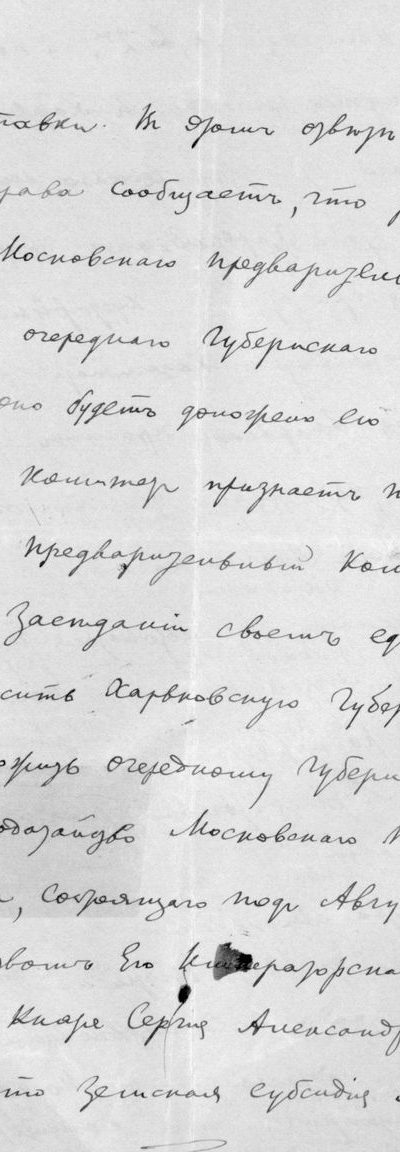 тавки. Въ этомъ отвѣтѣ
рава сообщаетъ, что
Московскаго предварител
очереднаго Губернскаго
оно будетъ доложено его
Комитетъ признаетъ
предварительный Ком
Засѣданіи своемъ
сить Харьковскую Губер
очередному Губерн
одатайство Московскаго
, состоящаго подъ Авгу
Его Императорска
Князе Сергія Александр
что Земская субсидія